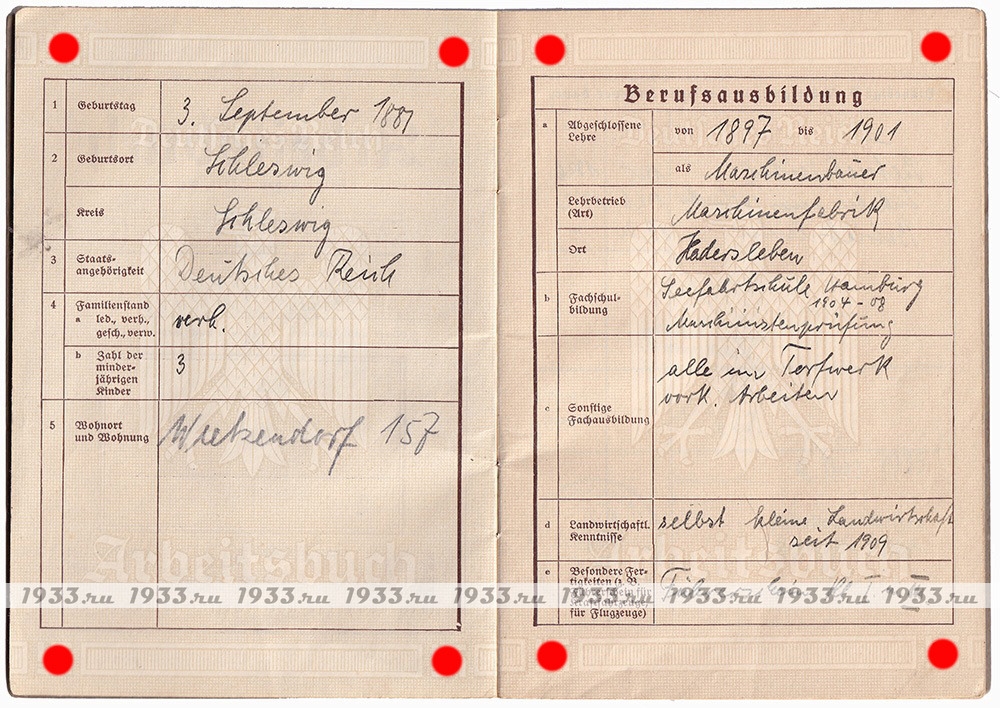 1 Geburtstag
3. September 1881
2 Geburtsort
Schleswig
Kreis
Schleswig
3 Staats-
angehörigkeit
Deutsches Reich
4 Familienstand
a led., verh.,
gesch., verw.
verh.
b Zahl der
minder-
jährigen
Kinder
3
5 Wohnort
und Wohnung
Wietzendorf 157
Arbeitsbuch
Berufsausbildung
a Abgeschlossene
Lehre
von 1897 bis 1901
als Maschinenbauer
Lehrbetrieb
(Art)
Maschinenfabrik
Ort
Hadersleben
b Fachschul-
bildung
Seefahrtschule Hamburg
1904-08
Maschinistenprüfung
c Sonstige
Fachausbildung
alle im Torfwerk
vork. Arbeiten
d Landwirtschaftl.
Kenntnisse
selbst kleine Landwirtschaft
seit 1909
e Besondere Fer-
tigkeiten (z. B.
Führerschein für
Kraftfahrzeuge,
für Flugzeuge)
Arbeitsbuch
1933.ru 1933.ru 1933.ru 1933.ru 1933.ru 1933.ru 1933.ru 1933.ru 1933.ru